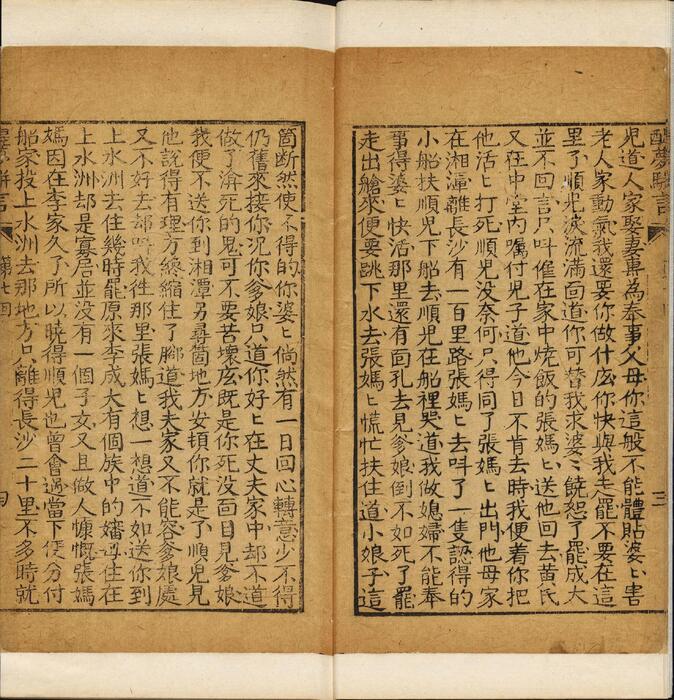 醒夢駢言
三
兒道人家娶妻專為奉事父母你這般不能體貼婆〻害
老人家動氣我還要你做什庅你快與我走罷不要在這
里了順兒淚流滿面道你可替我求婆〻饒恕了罷成大
並不回言只呌僱在家中燒飯的張媽〻送他回去黃氏
又在中堂內囑付兒子道他今日不肯去時我便着你把
他活〻打死順兒沒奈何只得同了張媽〻出門他母家
在湘潭離長沙有一百里路張媽〻去呌了一隻認得的
小船扶順兒下船去順兒在船裡哭道我做媳婦不能奉
事得婆〻快活那里還有面孔去見爹娘倒不如死了罷
走出艙來便要跳下水去張媽〻慌忙扶住道小娘子這
箇斷然使不得的你婆〻倘然有一日回心轉意少不得
仍舊來接你況你爹娘只道你好〻在丈夫家中却不道
做了渰死的鬼可不要苦壞庅既是你死沒面目見爹娘
我便不送你到湘潭另尋箇地方安頓你就是了順兒見
他說得有理方纔縮住了腳道我夫家又不能容爹娘處
又不好去却呌我徃那里張媽〻想一想道不如送你到
上水洲去住幾時罷原來李成大有個族中的嬸母住在
上水洲却是寡居並沒有一個子女又且做人慷慨張媽
媽因在李家久了所以曉得順兒也曾會過當下便分付
船家投上水洲去那地方只離得長沙二十里不多時就
醒夢駢言
第七回
四